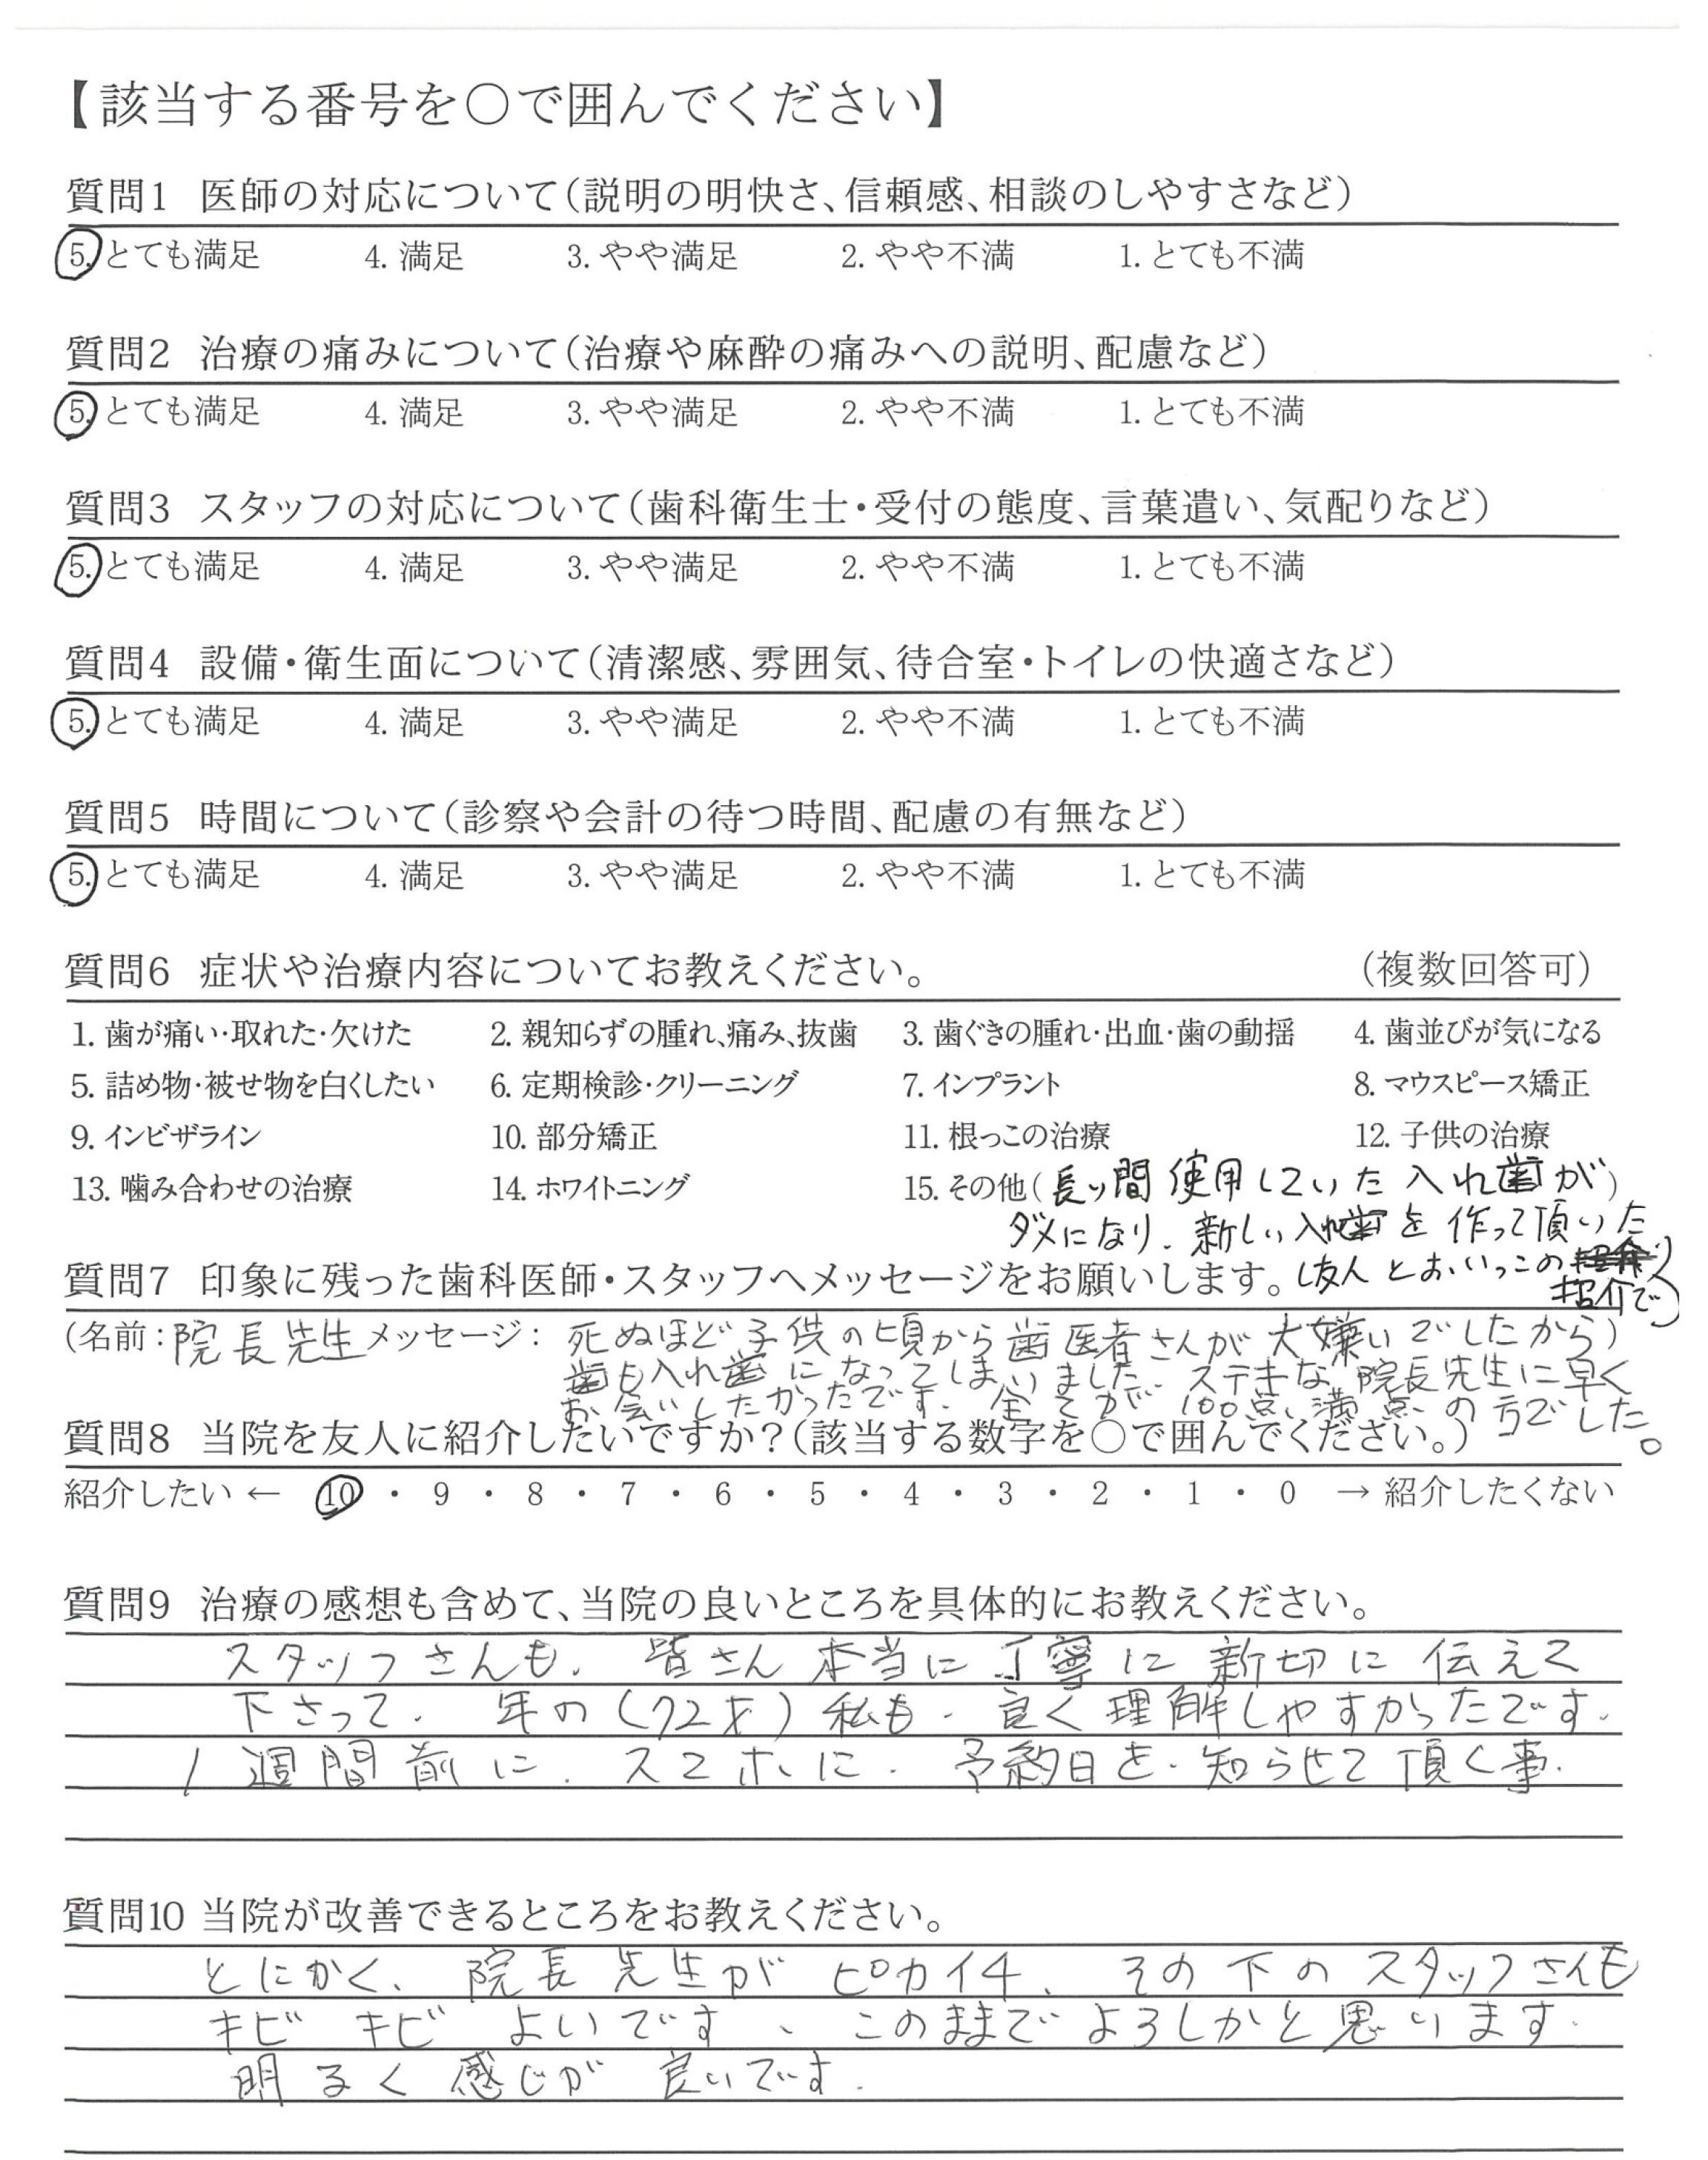 【該当する番号を○で囲んでください】
質問1 医師の対応について(説明の明快さ、信頼感、相談のしやすさなど)
5. とても満足 4. 満足 3. やや満足 2. やや不満 1. とても不満
質問2 治療の痛みについて(治療や麻酔の痛みへの説明、配慮など)
5. とても満足 4. 満足 3. やや満足 2. やや不満 1. とても不満
質問3 スタッフの対応について(歯科衛生士・受付の態度、言葉遣い、気配りなど)
5. とても満足 4. 満足 3. やや満足 2. やや不満 1. とても不満
質問4 設備・衛生面について(清潔感、雰囲気、待合室・トイレの快適さなど)
5. とても満足 4. 満足 3. やや満足 2. やや不満 1. とても不満
質問5 時間について(診察や会計の待つ時間、配慮の有無など)
5. とても満足 4. 満足 3. やや満足 2. やや不満 1. とても不満
質問6 症状や治療内容についてお教えください。 (複数回答可)
1. 歯が痛い・取れた・欠けた 2. 親知らずの腫れ、痛み、抜歯 3. 歯ぐきの腫れ・出血・歯の動揺 4. 歯並びが気になる
5. 詰め物・被せ物を白くしたい 6. 定期検診・クリーニング 7. インプラント 8. マウスピース矯正
9. インビザライン 10. 部分矯正 11. 根っこの治療 12. 子供の治療
13. 噛み合わせの治療 14. ホワイトニング 15. その他(長い間使用していた入れ歯が)
ダメになり、新しい入れ歯を作って頂いた
質問7 印象に残った歯科医師・スタッフへメッセージをお願いします。(友人とおいっこの
紹介で)
(名前:院長先生 メッセージ: 死ぬほど子供の頃から歯医者さんが大嫌いでしたから)
歯も入れ歯になってしまいました。ステキな院長先生に早く
お会いしたかったです。全てが100点満点の方でした。
質問8 当院を友人に紹介したいですか?(該当する数字を○で囲んでください。)
紹介したい ← 10 ・ 9 ・ 8 ・ 7 ・ 6 ・ 5 ・ 4 ・ 3 ・ 2 ・ 1 ・ 0 → 紹介したくない
質問9 治療の感想も含めて、当院の良いところを具体的にお教えください。
スタッフさんも、皆さん本当に丁寧に新切に伝えて
下さって、年の(72才)私も、良く理解しやすかったです。
1週間前に、スマホに、予約日を、知らせて頂く事。
質問10 当院が改善できるところをお教えください。
とにかく、院長先生がピカイチ、その下のスタッフさんも
キビキビよいです、このままでよろしかと思います。
明るく感じが良いです。